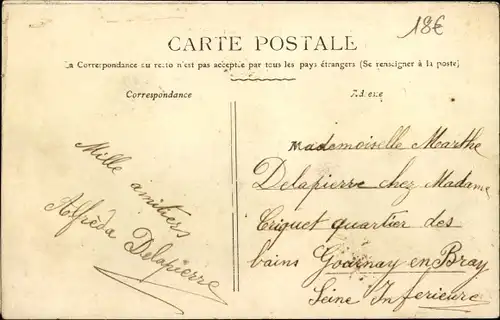 18€
CARTE POSTALE
La Correspondance au recto n'est pas acceptée par tous les pays étrangers (Se renseigner à la poste)
Correspondance
Adresse
Mille amitiers
Alfrèda Delapierre
Mademoiselle Marthe
Delapierre chez Madame
Criquet quartier des
bains Gournay en Bray
Seine Inferieure